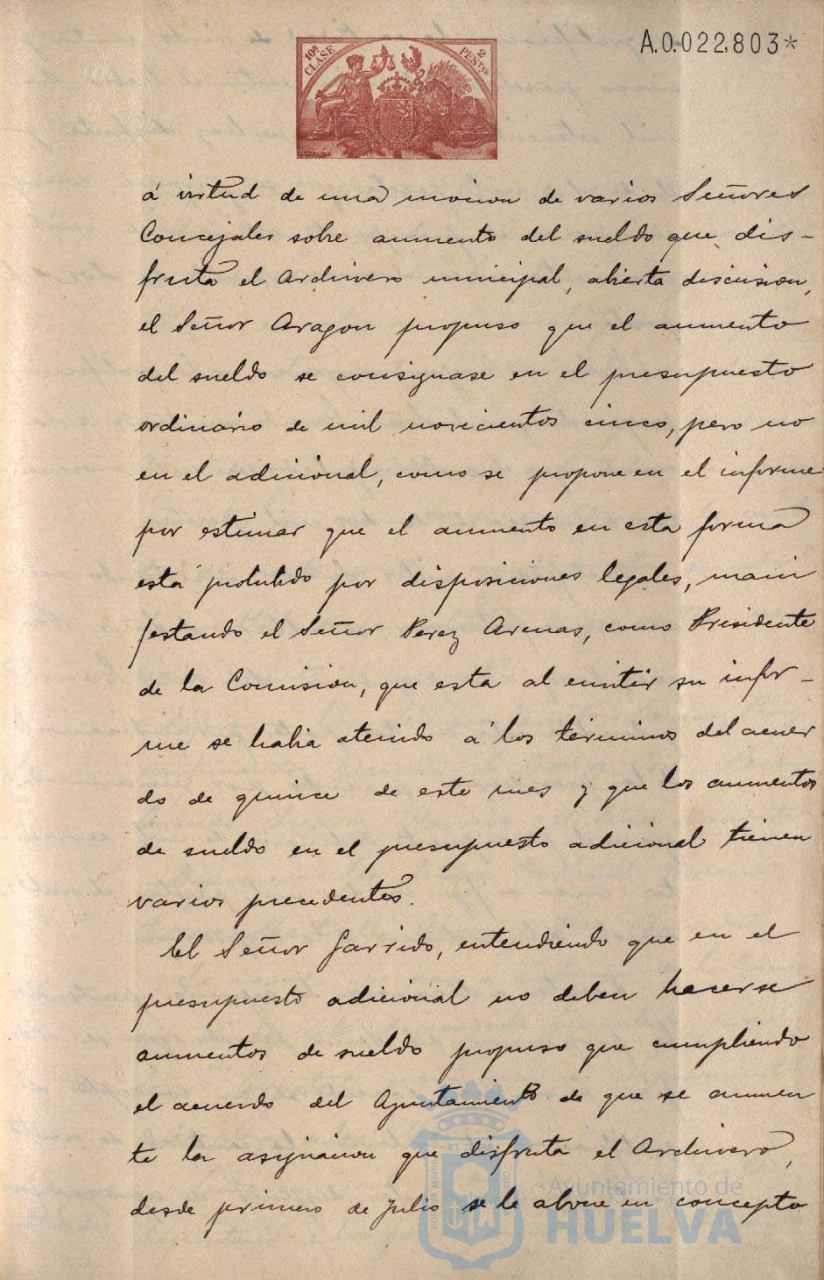 10ª CLASE
2 PESTAS
A.0.022.803*
á virtud de una mocion de varios Señores
Concejales sobre aumento del sueldo que dis-
fruta el Archivero municipal, abierta discusion,
el Señor Aragon propuso que el aumento
del sueldo se consignase en el presupuesto
ordinario de mil novecientos cinco, pero no
en el adicional, como se propone en el informe
por estimar que el aumento en esta forma
está prohibido por disposiciones legales, mani
festando el Señor Perez Arenas, como Presidente
de la Comision, que esta al emitir su infor-
me se habia atenido á los términos del acuer
do de quince de este mes y que los aumentos
de sueldo en el presupuesto adicional tienen
varios precedentes.
El Señor Garrido, entendiendo que en el
presupuesto adicional no deben hacerse
aumentos de sueldo propuso que cumpliendo
el acuerdo del Ayuntamiento de que se aumen
te la asignacion que disfruta el Archivero,
desde primero de Julio se le abone en concepto
Ayuntamiento de
HUELVA